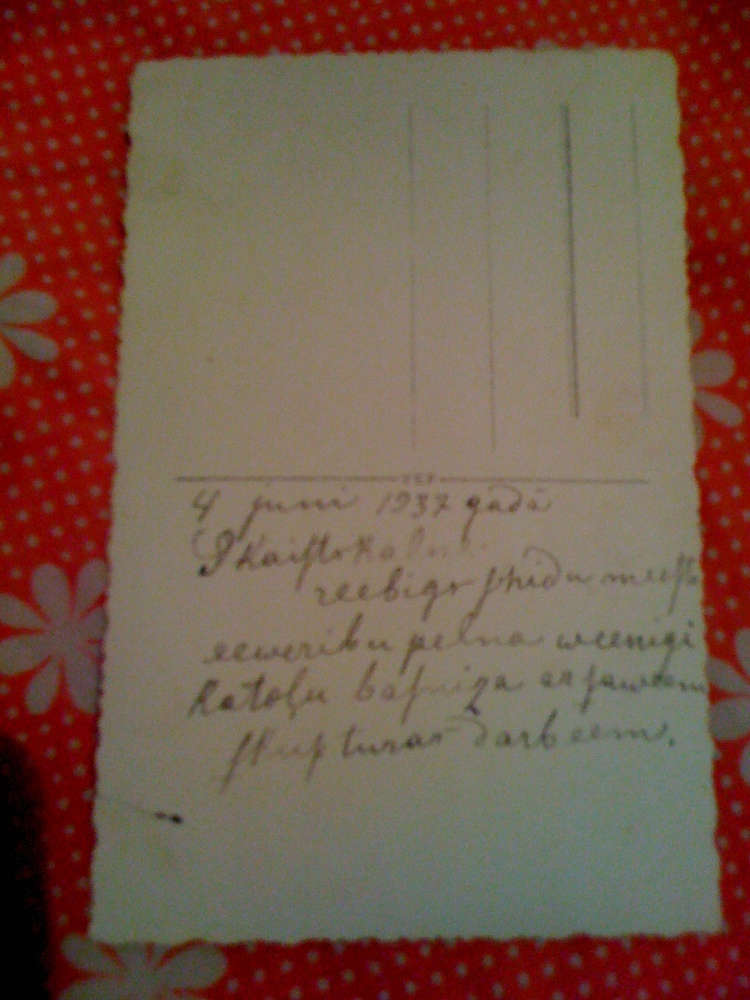 4 juni 1937 gadā
Skaistkalne
reebīgs schidu meests
eeweribu pelna weenigi
katoļu basniza ar saweem
skulpturas darbeem.